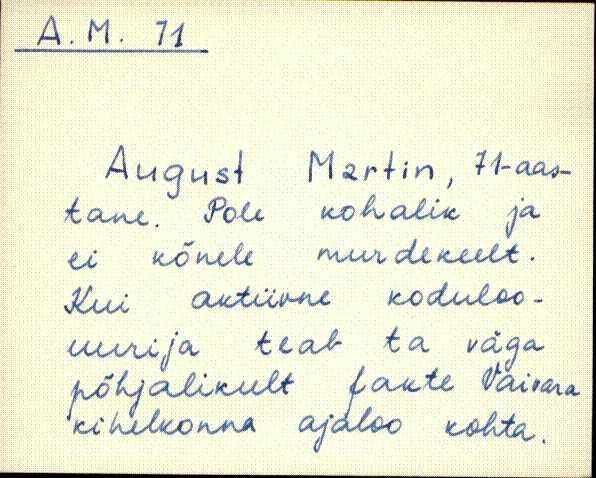 A. M. 71
August Martin, 71-aas-
tane. Pole kohalik ja
ei kõnele murdekeelt.
Kui aktiivne koduloo-
uurija teab ta väga
põhjalikult fakte Vaivara
kihelkonna ajaloo kohta.